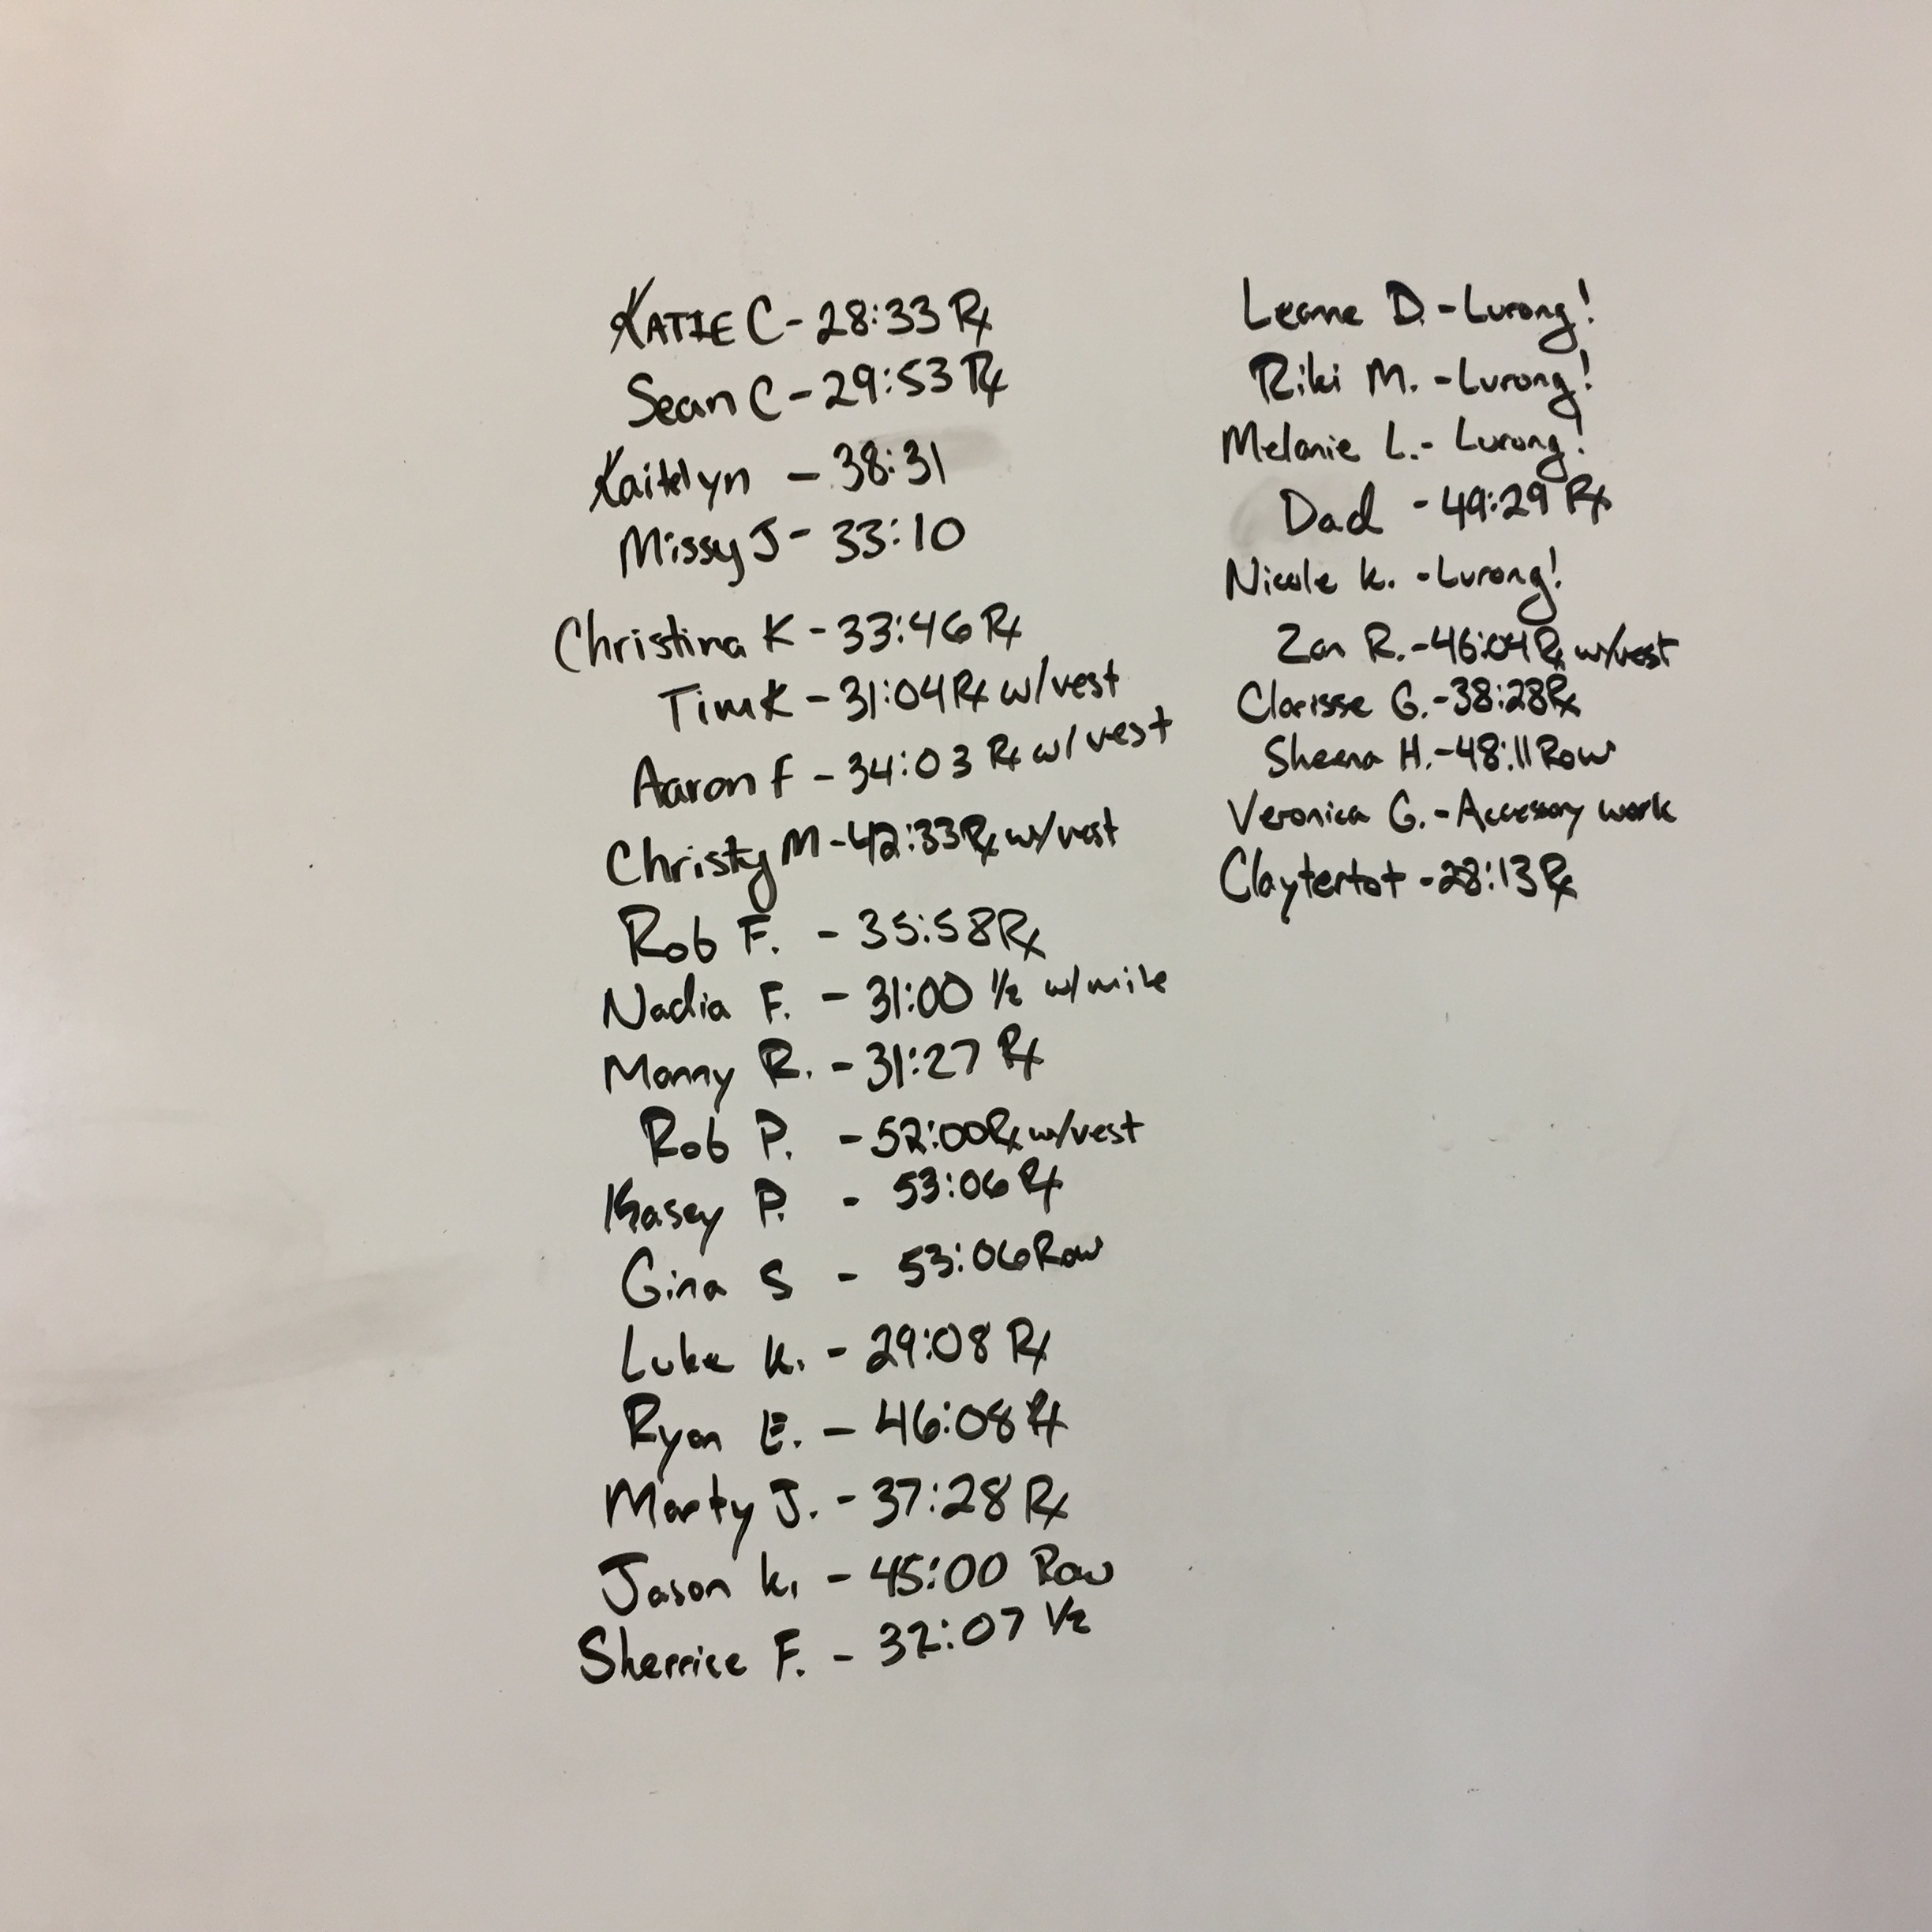 KATIE C - 28:33 Rx
Sean C - 29:53 Rx
Kaitlyn - 38:31
Missy J - 33:10
Christina K - 33:46 Rx
Tim K - 31:04 Rx w/vest
Aaron F - 34:03 Rx w/vest
Christy M - 42:33 Rx w/vest
Rob F. - 35:58 Rx
Nadia F. - 31:00 1/2 w/mile
Manny R. - 31:27 Rx
Rob P. - 52:00 Rx w/vest
Kasey P. - 53:06 Rx
Gina S - 53:06 Row
Luke K. - 29:08 Rx
Ryan E. - 46:08 Rx
Marty J. - 37:28 Rx
Jason K. - 45:00 Row
Sherrice F. - 32:07 1/2
Leanne D. - Lurong!
Riki M. - Lurong!
Melanie L. - Lurong!
Dad - 49:29 Rx
Nicole K. - Lurong!
Zan R. - 46:04 Rx w/vest
Clarisse G. - 38:28 Rx
Sheena H. - 48:11 Row
Veronica G. - Accessory work
Claytertot - 28:13 Rx